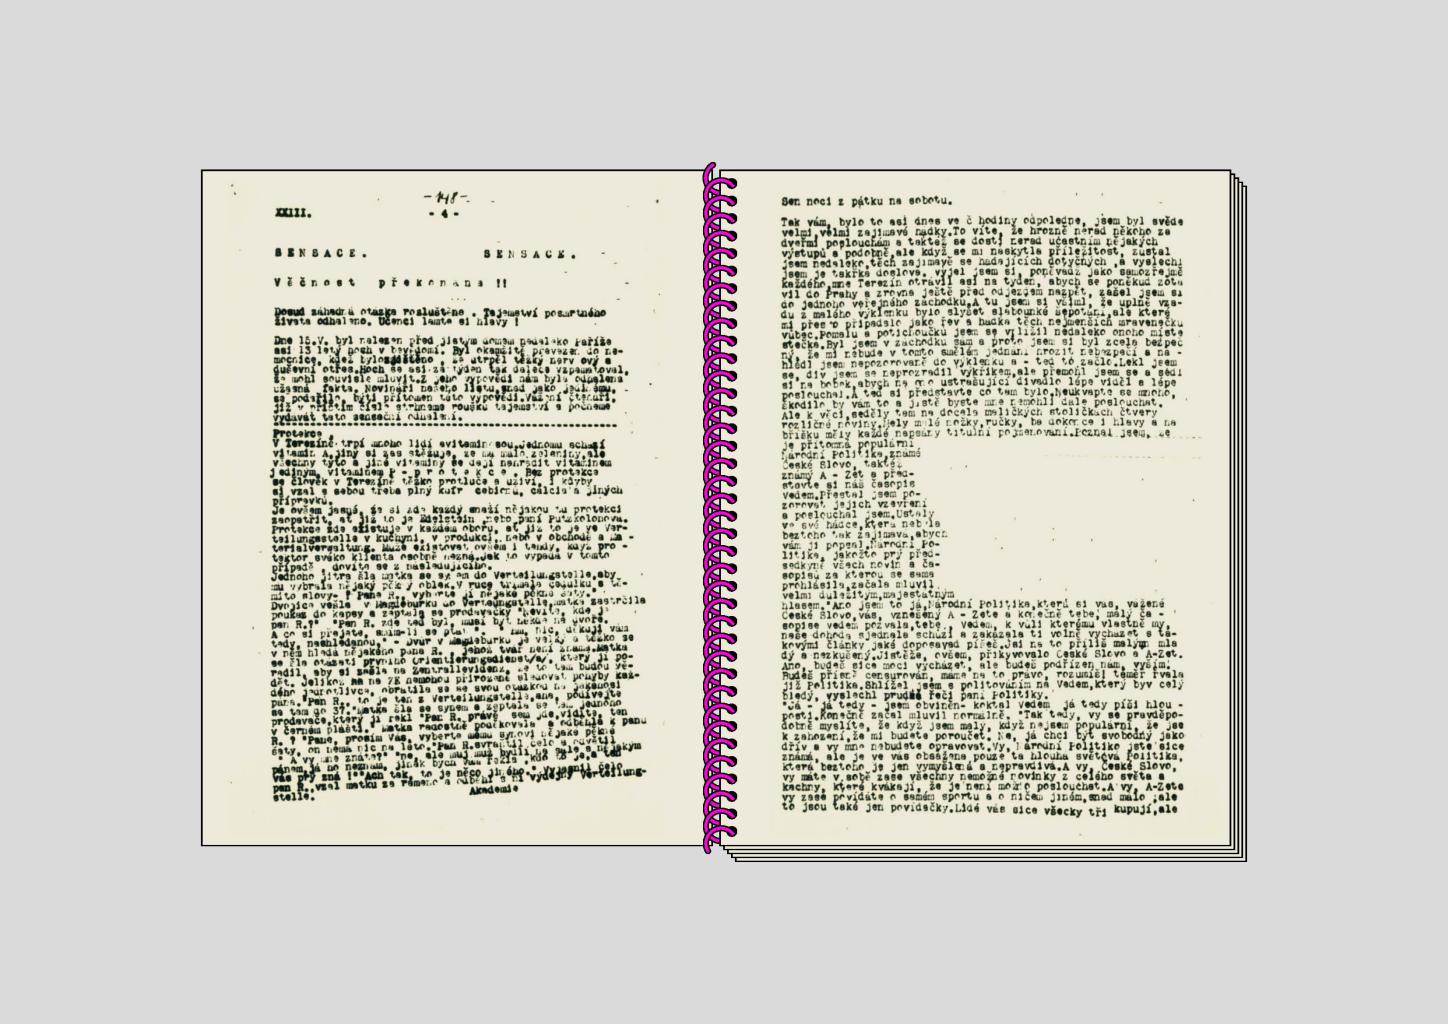 -148-
XXIII.
- 4 -
SENSACE. SENSACE.
Věčnost překonána !!
Dosud záhadná otázka rozluštěna . Tajemství posmrtného
života odhaleno. Učenci lámte si hlavy !
Dne 15.V. byl nalezen před jistým domem nedaleko Paříže
asi 13 letý hoch v bezvědomí. Byl okamžitě převezen do ne-
mocnice, kdež bylo že utrpěl těžký nerv ový a
duševní otřes.Hoch se asi za týden tak dalece vzpamatoval,
že mohl souvisle mluvit.Z jeho výpovědi nám byla odhalena
úžasná fakta. Novináři našeho listu,snad jako jedinému,
se podařilo, býti přítomen této výpovědi.Vážení čtenáři,
již v příštím čísle strhneme roušku tajemství a počneme
vydávat tato sensační odhalení.
Protekce
V Terezíně trpí mnoho lidí avitaminosou.Jednomu schází
vitamin A,jiný si zas stěžuje, že má málo zeleniny,ale
všechny tyto a jiné vitaminy se dají nahradit vitaminem
jediným, vitaminem P - p r o t e k c e . Bez protekce
se člověk v Terezíně těžko protluče a uživí, i kdyby
si vzal s sebou třeba plný kufr cebionu, calcia a jiných
přípravků.
Je ovšem jasné, že si zde každý snaží nějakou tu protekci
zaopatřit, ať již to je Edelstein ,nebo paní Putzkolonová.
Protekce zde existuje v každém oboru, ať již to je ve Ver-
teilungsstelle v kuchyni, v produkci, nebo v obchodě a Ma -
terialverwaltung. Může existovat ovšem i tehdy, když pro -
tektor svého klienta osobně nezná.Jak to vypadá v tomto
případě , dovíte se z následujícího.
Jednoho jitra šla matka se synem do Verteilungstelle,aby
mu vybrala nějaký pěkný oblek.V ruce třímala cedulku s tě-
mito slovy- " Pane R., vyberte jí nějaké pěkné šaty."
Dvojice vešla v Magdeburku do Verteilungstelle,matka zastrčila
poukaz do kapsy a zeptala se prodavačky "Nevíte, kde je
pan R.?" "Pan R. zde teď byl, musí být někde na dvoře.
A co si přejete, smím-li se ptát " . " Hm, nic, děkuji vám
tedy, nashledanou." - Dvůr v Magdeburku je velký a těžko se
v něm hledá nějakého pana R., jehož tvář není známa.Matka
se šla otázati prvního Orientierungsdienst/a/, který jí po-
radil, aby si zašla na Zentralevidenz, že to tam budou vě-
dět. Jelikož na ZE nemohou přirozeně sledovat pohyby kaž-
dého jednotlivce, obrátila se se svou otázkou na jakéhosi
pána."Pan R., to je ten z Verteilungstelle,ano, podívejte
se tam do 37."Matka šla se synem a zeptala se tam jednoho
prodavače,který jí řekl "Pan R. právě sem jde,vidíte, ten
v černém plášti." Matka radostně poděkovala a odběhla k panu
R. ? "Pane, prosím Vás, vyberte mému synovi nějaké pěkné
šaty, on nemá nic na léto."Pan R.svraštil čelo a odvětil
" A vy mne znáte?" "Ne, ale můj muž bydlí na sále s nějakým
pánem,já ho neznám, jinak bych vám řekla kdo to je,a ten
vás prý zná !""Ach tak, to je něco jiného." vyjasnil čelo
pan R.,vzal matku za rameno a odběhl s ní výdejny Verteilung-
stelle.
Akademie
Sen noci z pátku na sobotu.
Tak vám, bylo to asi dnes ve č hodiny odpoledne, jsem byl svěde
velmi,velmi zajímavé hádky.To víte, že hrozně nerad někoho za
dveřmi poslouchám a taktéž se dosti nerad účastním nějakých
výstupů a podobně,ale když se mi naskytla příležitost, zůstal
jsem nedaleko těch zajímavě se hádajících dotyčných ,a vyslechl
jsem je takřka doslova. vyjel jsem si, poněvadž jako samozřejmě
každého,mne Terezín otrávil asi na týden, abych se poněkud zota
vil do Prahy a zrovna ještě před odjezdem nazpět, zašel jsem si
do jednoho veřejného záchodku.A tu jsem si všiml, že úplně vza-
du z malého výklenku bylo slyšet slabounké šepotání,ale které
mi přesto připadalo jako řev a hádka těch nejmenších mravenečků
vůbec.Pomalu a potichoučku jsem se vplížil nedaleko onoho míste
stečka.Byl jsem v záchodku sám a proto jsem si byl zcela bezpeč
ný, že mi nebude v tomto smělém jednání hrozit nebezpečí a na -
hlédl jsem nepozorovaně do výklenku a - teď to začlo.Lekl jsem
se, div jsem se neprozradil výkřikem,ale přemohl jsem se a sedl
si na bobek,abych na ono ustrašující divadlo lépe viděl a lépe
poslouchal.A teď si představte co tam bylo.Neukvapte se mnoho,
škodilo by vám to a jistě byste mne nemohli dále poslouchat.
Ale k věci,seděly tam na docela maličkých stoličkách čtvery
rozličné noviny.Měly malé nožky,ručky, ba dokonce i hlavy a na
bříšku měly každé napsány titulní pojmenování.Poznal jsem, že
je přítomna populární
Národní Politika,známé
České Slovo, taktéž
známý A - Zet a před-
stavte si náš časopis
Vedem.Přestal jsem po-
zorovat jejich vzevření
a poslouchal jsem.Ustaly
ve své hádce,která nebyla
beztoho tak zajímavá,abych
vám ji popsal.Národní Po-
litika, jakožto prý před-
sedkyně všech novin a ča-
sopisů za kterou se sama
prohlásila,začala mluvil
velmi důležitým,majestátným
hlasem."Ano jsem to já,Národní Politika,která si vás, vážené
České Slovo,vás, vznešený A - Zete a konečně tebe, malý ča -
sopise vedem pozvala,tebe , vedem, k vůli kterému vlastně my,
naše dohoda sjednala schůzi a zakázala ti volně vycházet s ta-
kovými články jaké doposavad píšeš.Jsi na to příliš malým mla
dý a nezkušený.Jistěže, ovšem, přikyvovalo České Slovo a A-Zet.
Ano, budeš sice moci vycházet, ale budeš podřízen nám, vyšším.
Budeš přísně censurován, máme na to právo, rozumíš! téměř řvala
již Politika.Shlížel jsem s politováním na Vedem,který byv celý
bledý, vyslechl prudké řeči paní Politiky.
"Já - já tedy - jsem obviněn- koktal vedem já tedy píši hlou -
posti.Konečně začal mluvil normálně. "Tak tedy, vy se pravděpo-
dobně myslíte, že když jsem malý, když nejsem populární, že jse
k zahození,že mi budete poroučet. Ne, já chci být svobodný jako
dřív a vy mne nebudete opravovat.Vy, Národní Politiko jste sice
známá, ale je ve vás obsažena pouze ta hloupá světová Politika,
která beztoho je jen vymyšlená a nepravdivá.A vy, České Slovo,
vy máte v sobě zase všechny nemožné novinky z celého světa a
kachny, které kvákají, že je není možno poslouchat.A vy, A-Zete
vy zase povídáte o samém sportu a o ničem jiném,snad málo ,ale
to jsou také jen povídačky.Lidé vás sice všecky tři kupují,ale